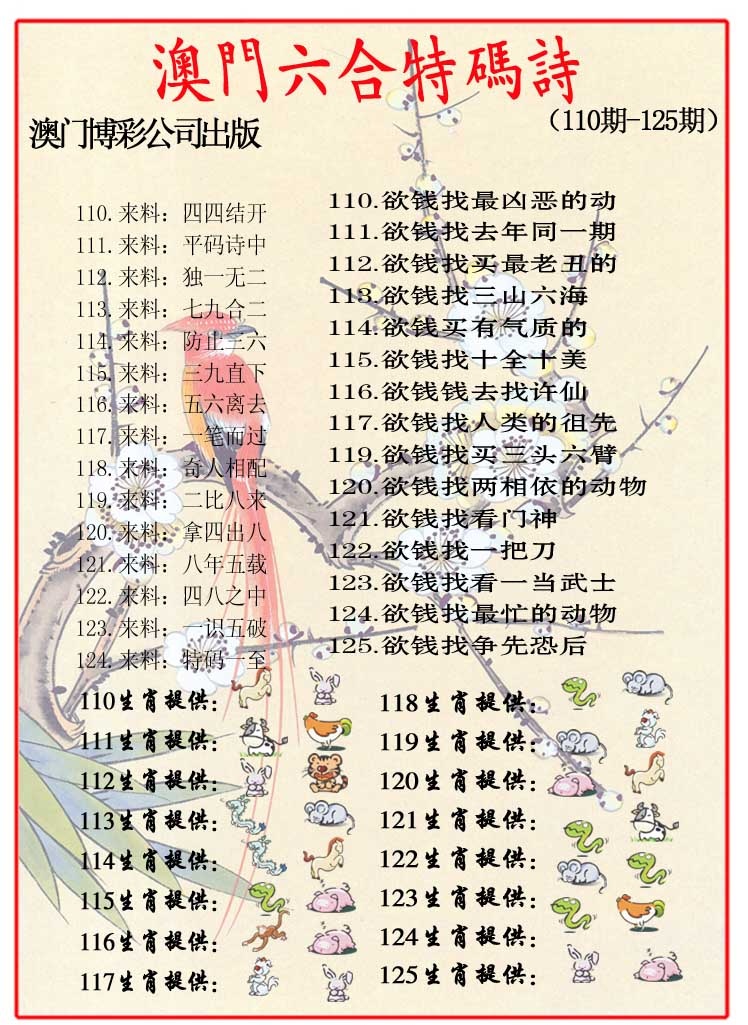 澳門六合特碼詩
澳门博彩公司出版
（110期-125期）
110.来料：四四结开
111.来料：平码诗中
112.来料：独一无二
113.来料：七九合二
114.来料：防止三六
115.来料：三九直下
116.来料：五六离去
117.来料：一笔而过
118.来料：奇人相配
119.来料：二比八来
120.来料：拿四出八
121.来料：八年五载
122.来料：四八之中
123.来料：一识五破
124.来料：特码一至
110.欲钱找最凶恶的动
111.欲钱找去年同一期
112.欲钱找买最老丑的
113.欲钱找三山六海
114.欲钱买有气质的
115.欲钱找十全十美
116.欲钱钱去找许仙
117.欲钱找人类的祖先
119.欲钱找买三头六臂
120.欲钱找两相依的动物
121.欲钱找看门神
122.欲钱找一把刀
123.欲钱找看一当武士
124.欲钱找最忙的动物
125.欲钱找争先恐后
110生肖提供：
111生肖提供：
112生肖提供：
113生肖提供：
114生肖提供：
115生肖提供：
116生肖提供：
117生肖提供：
118生肖提供：
119生肖提供：
120生肖提供：
121生肖提供：
122生肖提供：
123生肖提供：
124生肖提供：
125生肖提供：